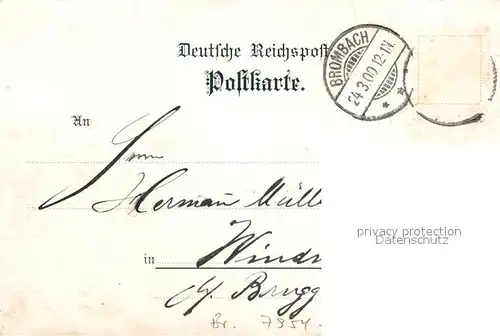 Deutsche Reichspost
Postkarte.
BROMBACH
24.3.00.12-1N.
An
Herrn
Hermann Mülle
in Windi
Brugg
privacy protection
Datenschutz
Br. 7954